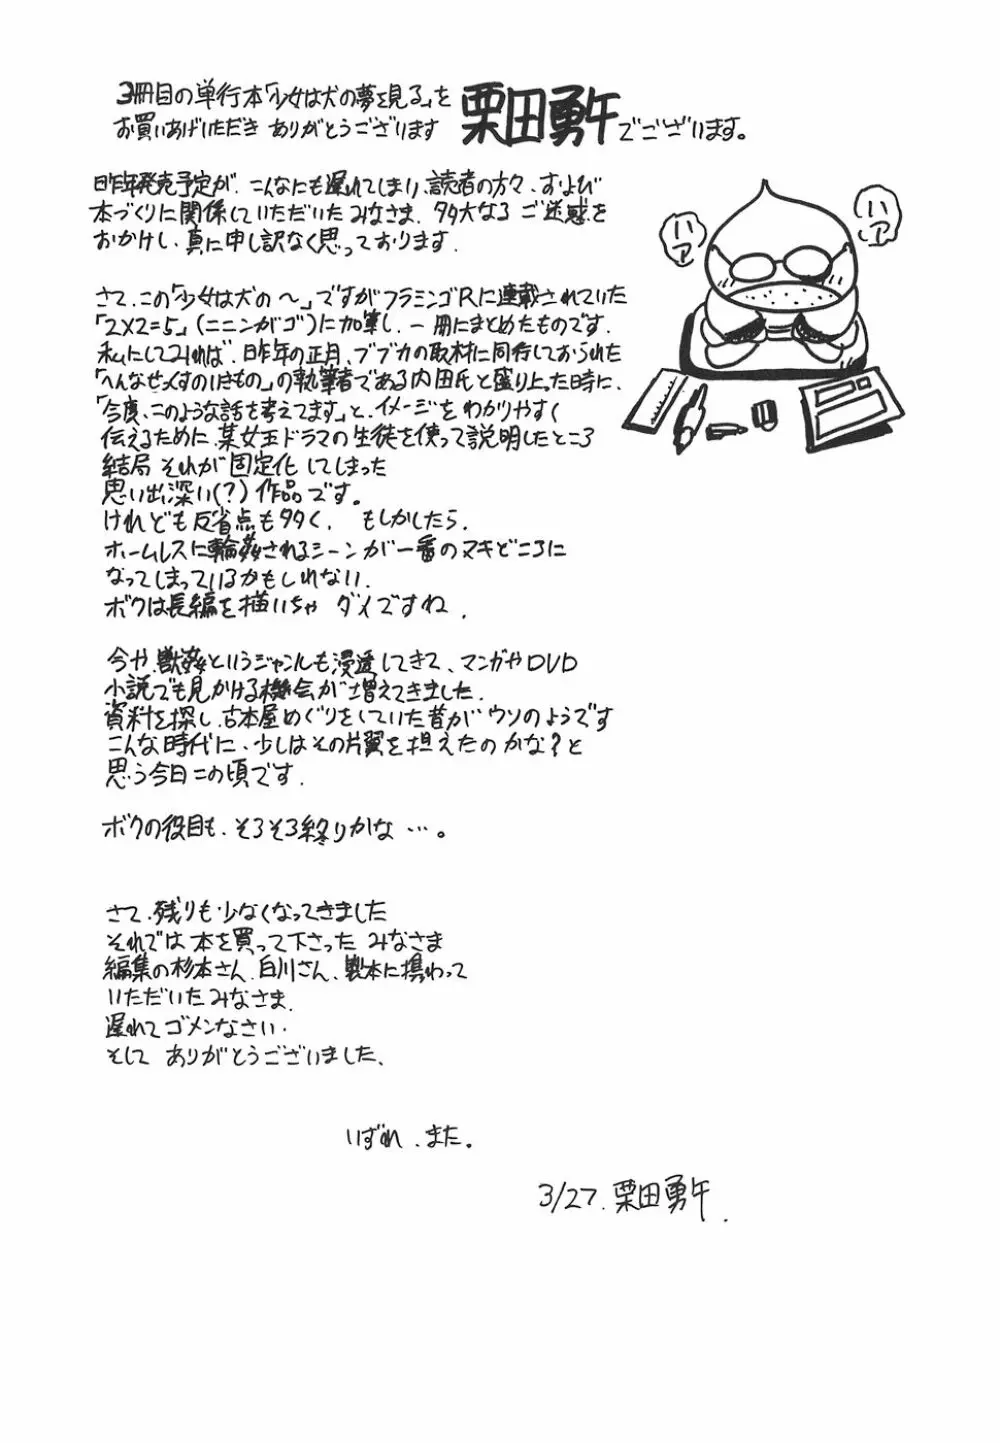 3冊目の単行本「少女は犬の夢を見る」を
お買いあげいただき ありがとうございます 栗田勇午でございます。
ハァ
ハァ
昨年発売予定が、こんなにも遅れてしまい、読者の方々、および
本づくりに関係していただいたみなさま、多大なる ご迷惑を
おかけし、真に申し訳なく思っております.
さて、この「少女は犬の〜」ですがフラミンゴRに連載されていた
「2X2=5」(ニニンがゴ)に加筆し、一冊にまとめたものです.
私にしてみれば、昨年の正月、ブブカの取材に同行しておられた
「へんなせっくすのいきもの」の執筆者である内田氏と盛り上った時に、
「今度、このような話も考えてます」と、イメージをわかりやすく
伝えるために、某女王ドラマの生徒を使って説明したところ
結局 それが固定化してしまった
思い出深い(?)作品です。
けれども反省点も多く、 もしかしたら、
ホームレスに輪姦されるシーンが一番のマキどころに
なってしまっているかもしれない.
ボクは長編を描いちゃ ダメですね.
今や、獣姦というジャンルも浸透してきて、マンガやDVD
小説でも見かける機会が増えてきました.
資料を探し、古本屋めぐりをしていた昔が ウソのようです
こんな時代に、少しはその片翼を担えたのかな?と
思う今日この頃です.
ボクの役目も、そろそろ終りかな…。
さて、残りも少なくなってきました
それでは本を買って下さった みなさま
編集の杉本さん、白川さん、製本に携わって
いただいたみなさま.
遅れてゴメンなさい.
そして ありがとうございました、
いずれ、また。
3/27. 栗田勇午.